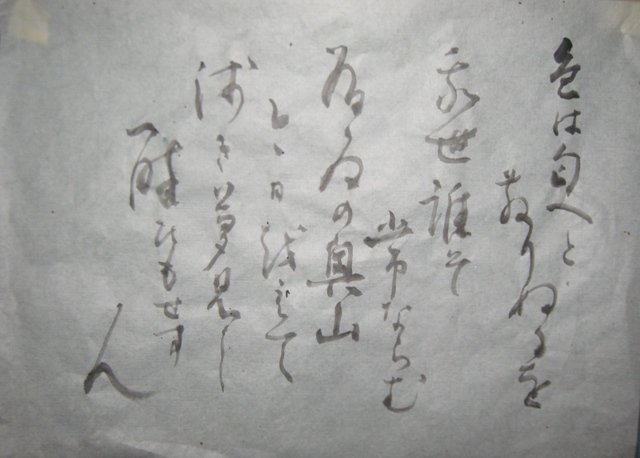 色は匂へと
散りぬるを
我世誰そ
常ならむ
有為の奥山
けふ越えて
浅き夢見し
酔ひもせす
ん